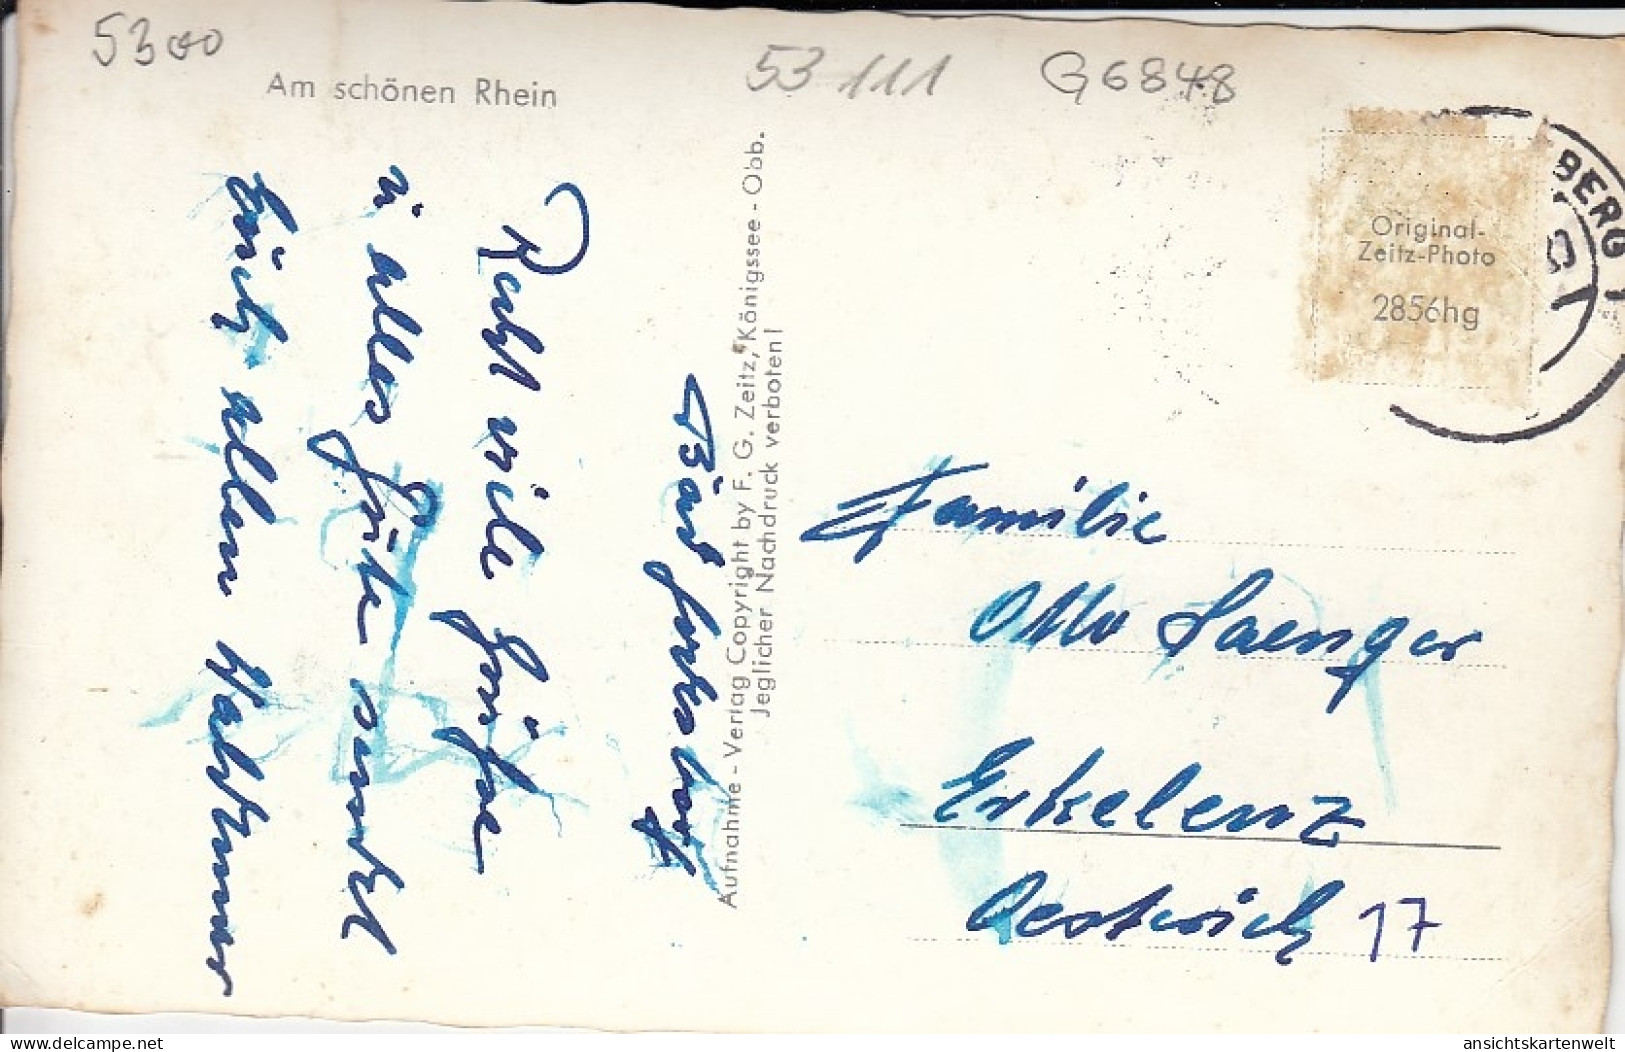 5300
53 111
G6848
Am schönen Rhein
Recht viele Grüße
u alles Gute sendet
Euch allen
Aufnahme - Verlag Copyright by F. G. Zeitz, Königssee - Obb.
Jeglicher Nachdruck verboten!
BERG
Original-
Zeitz-Photo
2856hg
Familie
Otto Saenger
Erkelenz
Oestrich 17
ansichtskartenwelt.de
ansichtskartenwelt